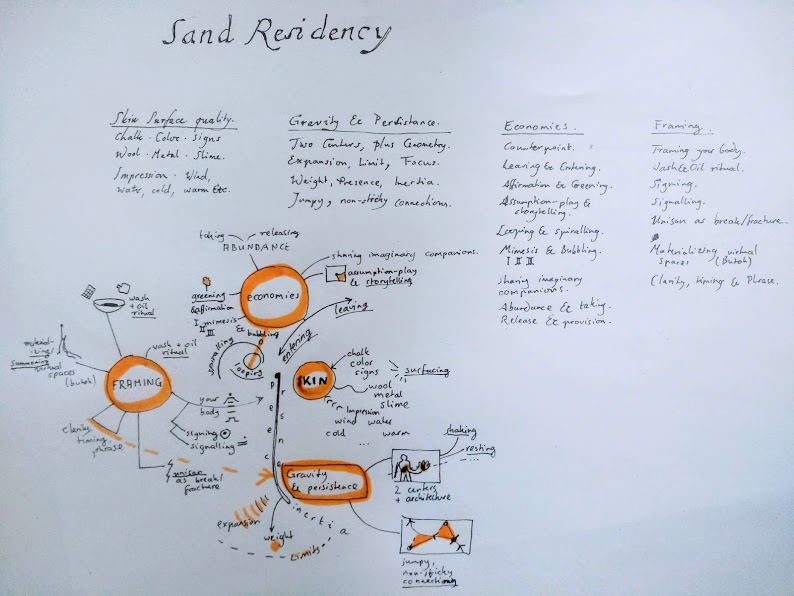 Sand Residency
Skin Surface quality.
Chalk · Color · Signs
Wool · Metal · Slime.
Impression · Wind,
water, cold, warm etc.
Gravity & Persistance.
Two Centers, plus Geometry.
Expansion, Limit, Focus.
Weight, Presence, Inertia.
Jumpy, non-sticky connections.
Economies.
Counterpoint.
Leaving & Entering.
Affirmation & Greening.
Assumption-play &
storytelling.
Looping & spiralling.
Mimesis & Bubbling.
I II III
sharing imaginary
companions.
Abundance & taking.
Release & provision.
Framing.
Framing your body.
Wash & Oil ritual.
Signing.
Signalling.
Unison as break/fracture.
Materializing virtual
spaces (Butoh)
Clarity, timing & Phrase.
taking
releasing
ABUNDANCE
sharing imaginary companions.
assumption-play
& storytelling
economies
greening
& affirmation
I II III mimesis
& bubbling
spiralling
looping
leaving
entering
wash
+ oil
ritual
wash + oil
ritual
materializing/
summoning virtual
spaces
(butoh)
FRAMING
your
body
signing
signalling
clarity
timing,
phrase
unison
as break/
fracture
SKIN
chalk
color
signs
surfacing
wool
metal
slime
Impression
wind water
cold ... warm
presence
inertia
Gravity
& persistence
expansion
weight
Limits
shaking
resting
...
2 centers
+ architecture
jumpy,
non-sticky
connections